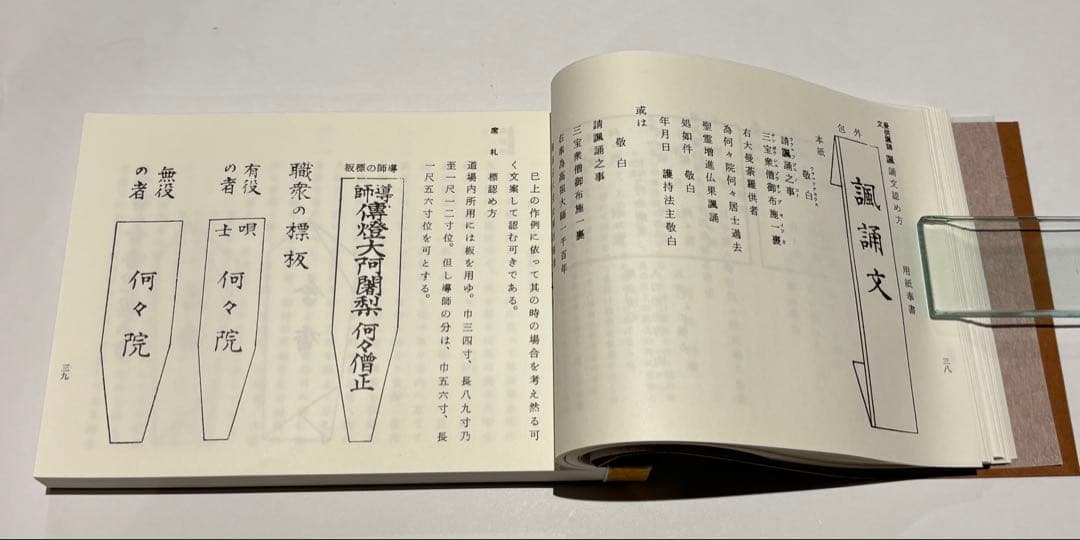 曼供諷誦文
諷誦文認め方　用紙奉書
外包
諷誦文
本紙
敬白
請諷誦之事
三宝衆僧御布施一裹
右大曼荼羅供者
為何々院何々居士過去
聖霊増進仏果諷誦
処如件　敬白
年月日　護持法主敬白
或は
敬白
請諷誦之事
三宝衆僧御布施一裹
右奉為高祖大師一千百年
三八
已上の作例に依って其の時の場合を考え然る可
く文案して認む可きである。
席札　標認め方
道場内所用には板を用ゆ。巾三四寸、長八九寸乃
至一尺一二寸位。但し導師の分は、巾五六寸、長
一尺五六寸位を可とする。
導師の標板
導師　傳燈大阿闍梨何々僧正
職衆の標板
有役の者
唄士　何々院
無役の者
何々院
三九